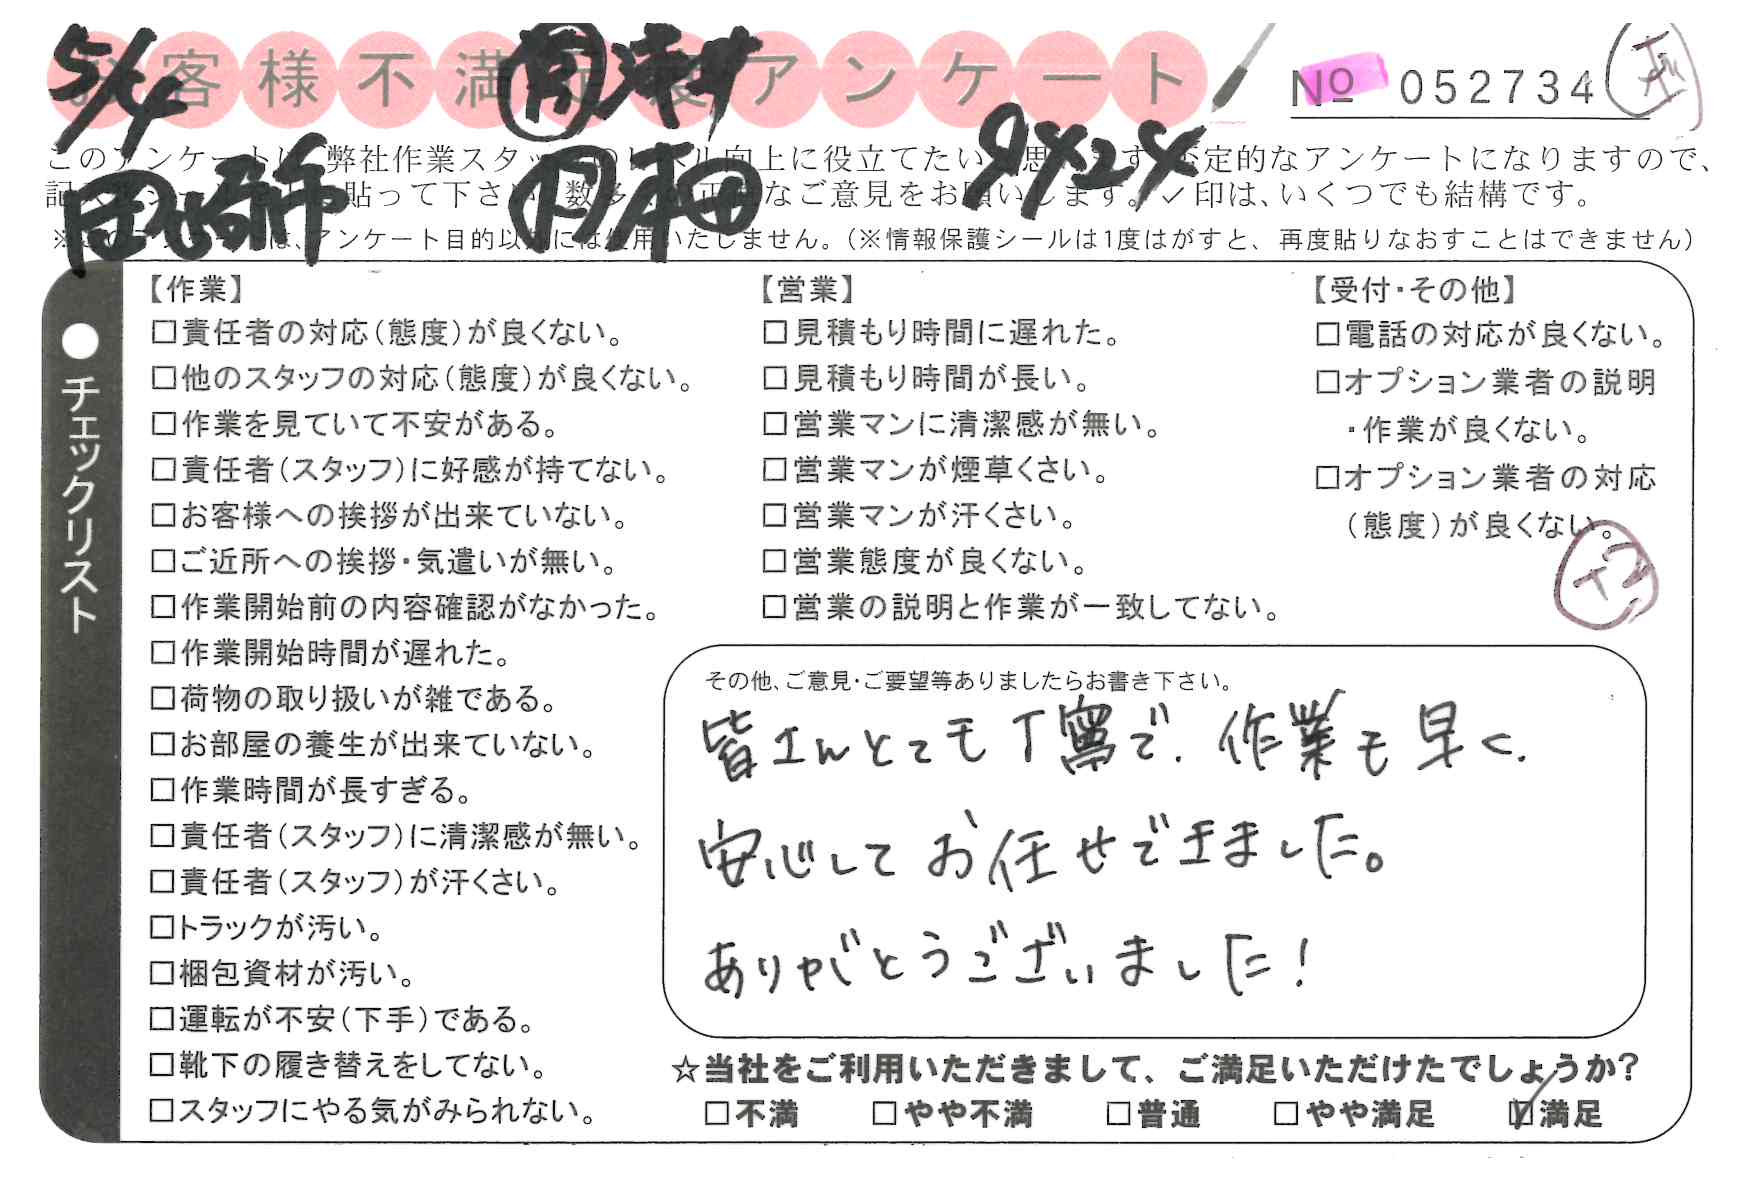 5/4
お客様不満足度アンケート
No 052734
このアンケートは、弊社作業スタッフのレベル向上に役立てたいと思います。否定的なアンケートになりますので、
記入後シールを上に貼って下さい。数多くの正直なご意見をお願いします。✓印は、いくつでも結構です。
※このアンケートは、アンケート目的以外には使用いたしません。（※情報保護シールは1度はがすと、再度貼りなおすことはできません）
●チェックリスト
【作業】
□責任者の対応（態度）が良くない。
□他のスタッフの対応（態度）が良くない。
□作業を見ていて不安がある。
□責任者（スタッフ）に好感が持てない。
□お客様への挨拶が出来ていない。
□ご近所への挨拶・気遣いが無い。
□作業開始前の内容確認がなかった。
□作業開始時間が遅れた。
□荷物の取り扱いが雑である。
□お部屋の養生が出来ていない。
□作業時間が長すぎる。
□責任者（スタッフ）に清潔感が無い。
□責任者（スタッフ）が汗くさい。
□トラックが汚い。
□梱包資材が汚い。
□運転が不安（下手）である。
□靴下の履き替えをしてない。
□スタッフにやる気がみられない。
【営業】
□見積もり時間に遅れた。
□見積もり時間が長い。
□営業マンに清潔感が無い。
□営業マンが煙草くさい。
□営業マンが汗くさい。
□営業態度が良くない。
□営業の説明と作業が一致してない。
【受付・その他】
□電話の対応が良くない。
□オプション業者の説明
・作業が良くない。
□オプション業者の対応
（態度）が良くない。
その他、ご意見・ご要望等ありましたらお書き下さい。
皆さんとても丁寧で、作業も早く、
安心してお任せできました。
ありがとうございました！
☆当社をご利用いただきまして、ご満足いただけたでしょうか？
□不満 □やや不満 □普通 □やや満足 ☑満足